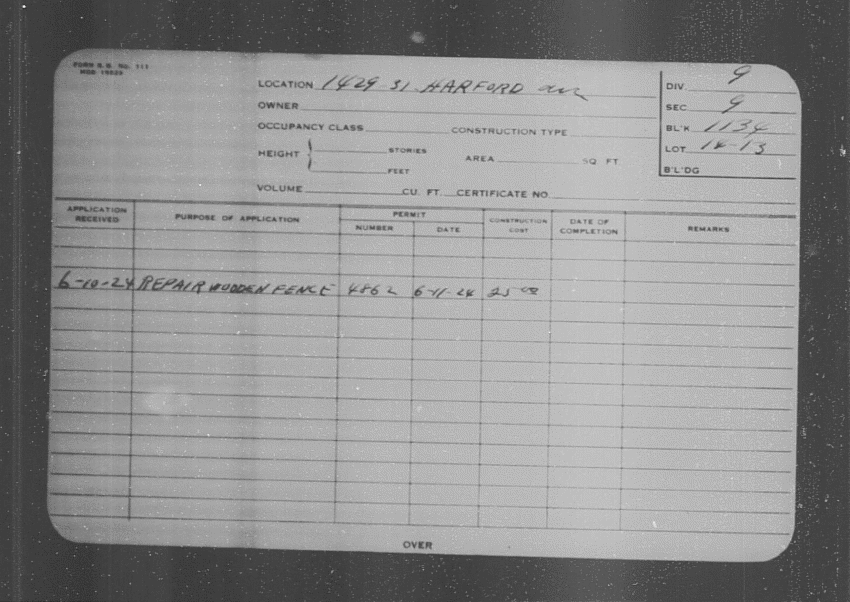 FORM B.B. No. 111
LOCATION 1429-31 HARFORD ave
DIV. 9
OWNER
SEC 9
OCCUPANCY CLASS CONSTRUCTION TYPE
BL'K 1134
HEIGHT { STORIES AREA SQ FT
LOT 14-13
FEET
B'L'DG
VOLUME CU. FT. CERTIFICATE NO.
APPLICATION RECEIVED PURPOSE OF APPLICATION PERMIT NUMBER DATE CONSTRUCTION COST DATE OF COMPLETION REMARKS
6-10-24 REPAIR WOODEN FENCE 4862 6-11-24 25 00
OVER